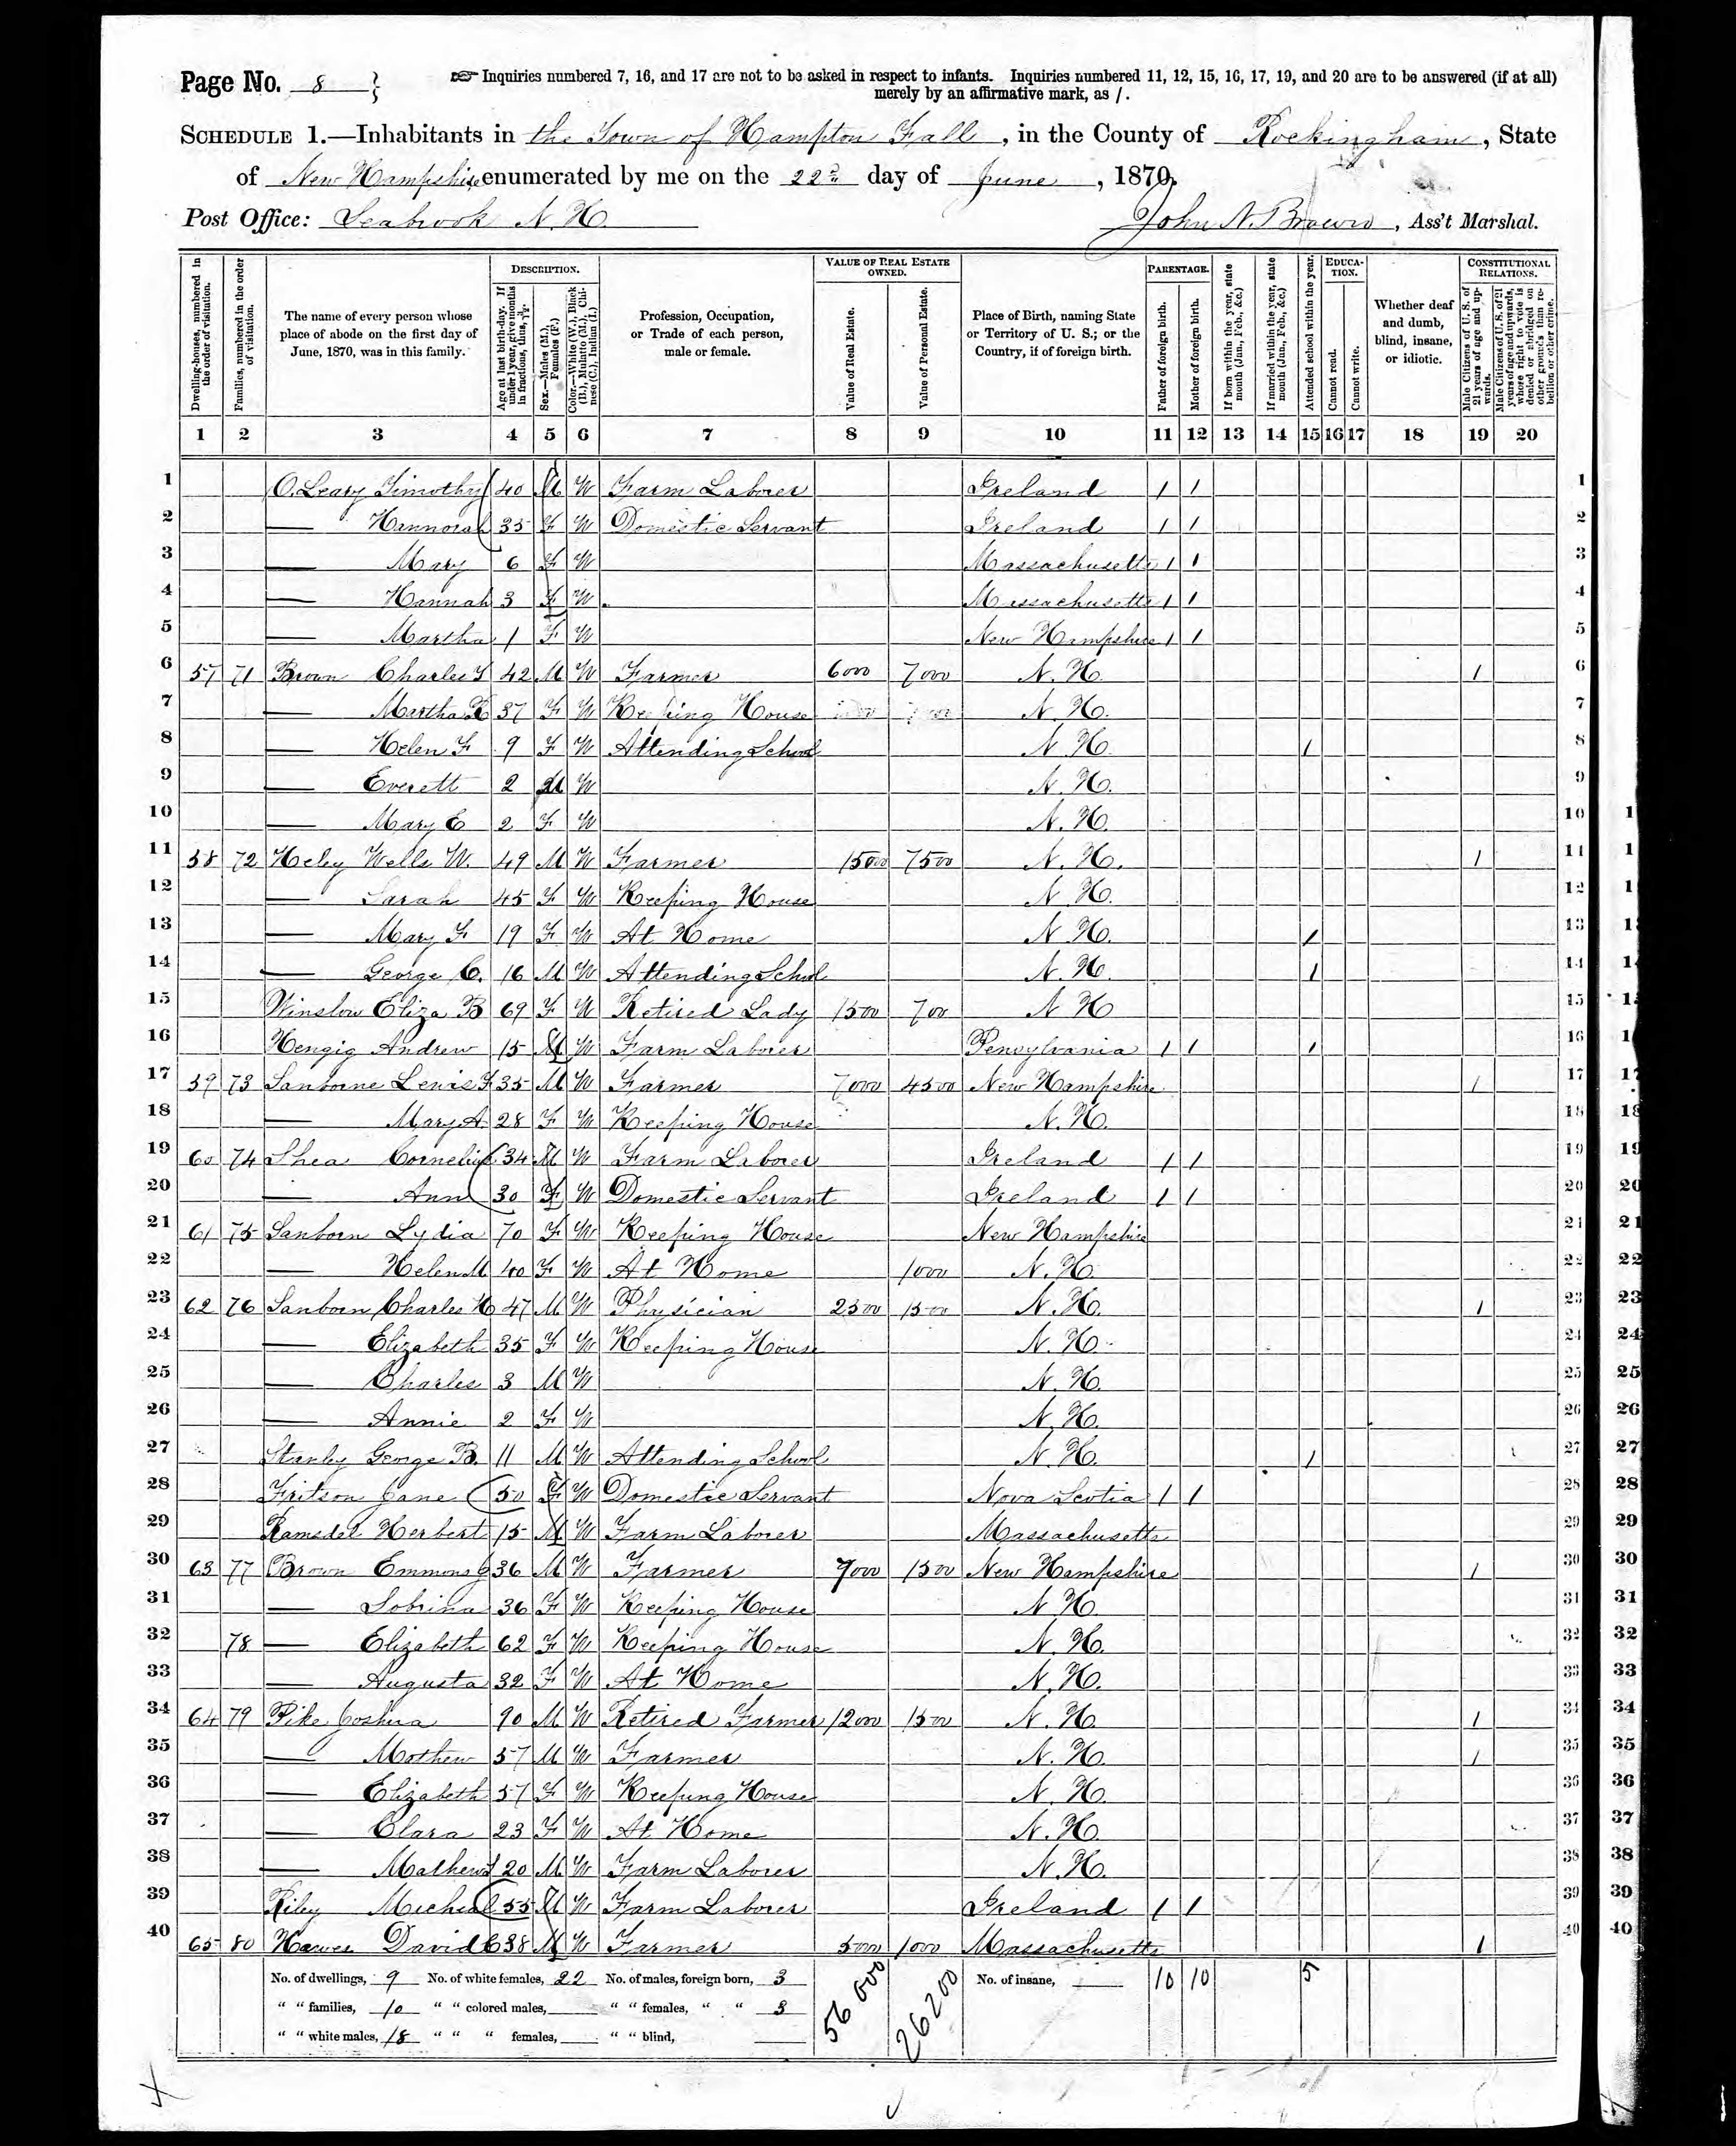 Page No. 8
☞ Inquiries numbered 7, 16, and 17 are not to be asked in respect to infants. Inquiries numbered 11, 12, 15, 16, 17, 19, and 20 are to be answered (if at all)
merely by an affirmative mark, as /.
SCHEDULE 1.—Inhabitants in the Town of Hampton Fall, in the County of Rockingham, State
of New Hampshire enumerated by me on the 22d day of June, 1870.
Post Office: Seabrook N. H. John N. Brown, Ass't Marshal.
Dwelling-houses, numbered in the order of visitation.
Families, numbered in the order of visitation.
The name of every person whose place of abode on the first day of June, 1870, was in this family.
DESCRIPTION.
Age at last birth-day. If under 1 year, give months in fractions, thus, 3/12.
Sex.—Males (M.), Females (F.)
Color.—White (W.), Black (B.), Mulatto (M.), Chinese (C.), Indian (I.)
Profession, Occupation, or Trade of each person, male or female.
VALUE OF REAL ESTATE OWNED.
Value of Real Estate.
Value of Personal Estate.
Place of Birth, naming State or Territory of U. S.; or the Country, if of foreign birth.
PARENTAGE.
Father of foreign birth.
Mother of foreign birth.
If born within the year, state month (Jan., Feb., &c.)
If married within the year, state month (Jan., Feb., &c.)
Attended school within the year.
EDUCATION.
Cannot read.
Cannot write.
Whether deaf and dumb, blind, insane, or idiotic.
CONSTITUTIONAL RELATIONS.
Male Citizens of U. S. of 21 years of age and upwards.
Male Citizens of U. S. of 21 years of age and upwards, whose right to vote is denied or abridged on other grounds than rebellion or other crime.
1 2 3 4 5 6 7 8 9 10 11 12 13 14 15 16 17 18 19 20
1 O. Leary Timothy 40 M W Farm Laborer Ireland / / 1
2 — Hannorah 35 F W Domestic Servant Ireland / / 2
3 — Mary 6 F W Massachusetts / / 3
4 — Hannah 3 F W Massachusetts / / 4
5 — Martha 1 F W New Hampshire / / 5
6 57 71 Brown Charles T 42 M W Farmer 6000 7000 N. H. / 6
7 — Martha 37 F W Keeping House N. H. 7
8 — Helen F 9 F W Attending School N. H. / 8
9 — Everett 2 M W N. H. 9
10 — Mary E 2 F W N. H. 10
11 58 72 Heley Wells W. 49 M W Farmer 15000 7500 N. H. / 11
12 — Sarah 45 F W Keeping House N. H. 12
13 — Mary F 19 F W At Home N. H. / 13
14 — George C. 16 M W Attending School N. H. / 14
15 Winslow Eliza B 69 F W Retired Lady 1500 700 N H 15
16 Hengig Andrew 15 M W Farm Laborer Pensylvania / / / 16
17 59 73 Sanborne Lewis F 35 M W Farmer 7000 4500 New Hampshire / 17
18 — Mary A. 28 F W Keeping House N. H. 18
19 60 74 Shea Cornelius 34 M W Farm Laborer Ireland / / 19
20 — Ann 30 F W Domestic Servant Ireland / / 20
21 61 75 Sanborn Lydia 70 F W Keeping House New Hampshire 21
22 — Helen M 40 F W At Home 1000 N. H. 22
23 62 76 Sanborn Charles H 47 M W Physician 2500 1500 N. H. / 23
24 — Elizabeth 35 F W Keeping House N. H. 24
25 — Charles 3 M W N. H. 25
26 — Annie 2 F W N. H. 26
27 Stanley George B. 11 M W Attending School N. H. / 27
28 Fritson Jane 50 F W Domestic Servant Nova Scotia / / 28
29 Ramsdel Herbert 15 M W Farm Laborer Massachusetts 29
30 63 77 Brown Emmons J 36 M W Farmer 7000 1500 New Hampshire / 30
31 — Sobrina 36 F W Keeping House N H. 31
32 78 — Elizabeth 62 F W Keeping House N. H. 32
33 — Augusta 32 F W At Home N. H. 33
34 64 79 Pike Joshua 90 M W Retired Farmer 12000 1500 N. H. / 34
35 — Mathew 57 M W Farmer N. H. / 35
36 — Elizabeth 57 F W Keeping House N. H. 36
37 — Clara 23 F W At Home N. H. 37
38 — Mathew 20 M W Farm Laborer N. H. 38
39 Riley Micheal 55 M W Farm Laborer Ireland / / 39
40 65 80 Hawes David C 38 M W Farmer 5000 1000 Massachusetts / 40
No. of dwellings, 9 No. of white females, 22 No. of males, foreign born, 3 56 000 26200 No. of insane, 10 10 5
" " families, 10 " " colored males, " " females, " " 3
" " white males, 18 " " " females, " " blind,